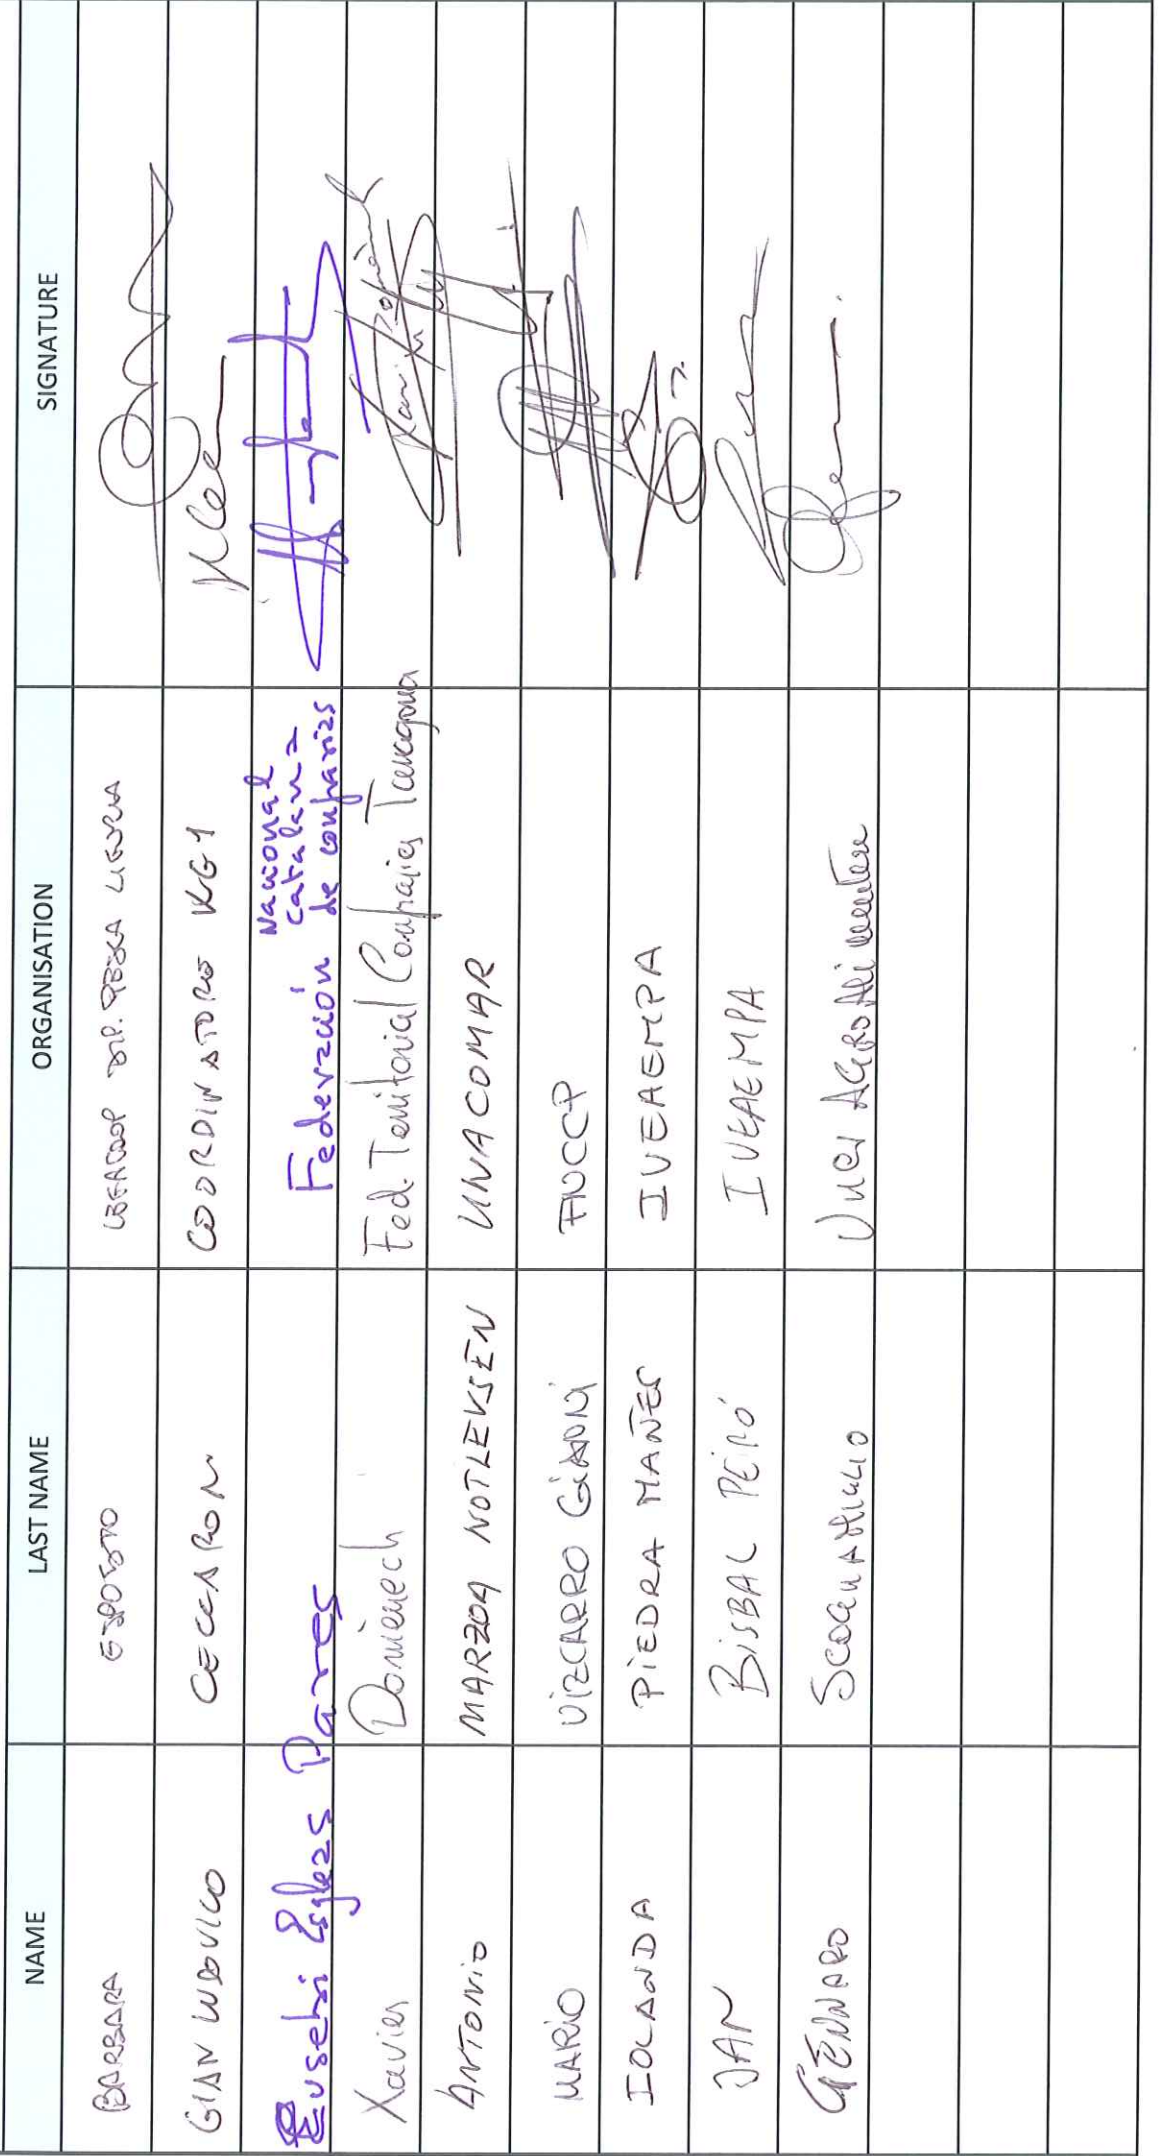 NAME LAST NAME ORGANISATION SIGNATURE
BARBARA ESPOSITO LEGACOOP DIP. PESCA LIGURIA
GIAN LUDOVICO CECCARONI COORDINATORE WG1
Eusebi Esgleas Pares Federación Nacional Catalana de confrarias
Xavier Domènech Fed. Territorial Confraries Tarragona
ANTONIO MARZOA NOTLEVSEN UNACOMAR
MARIO VIZCARRO GIANNI FNCCP
IOLANDA PIEDRA MAÑES IVEAEMPA
JAN BISBAL PEIRÓ IVEAEMPA
GENNARO SCOGNAMIGLIO UNCI AGROALIMENTARE